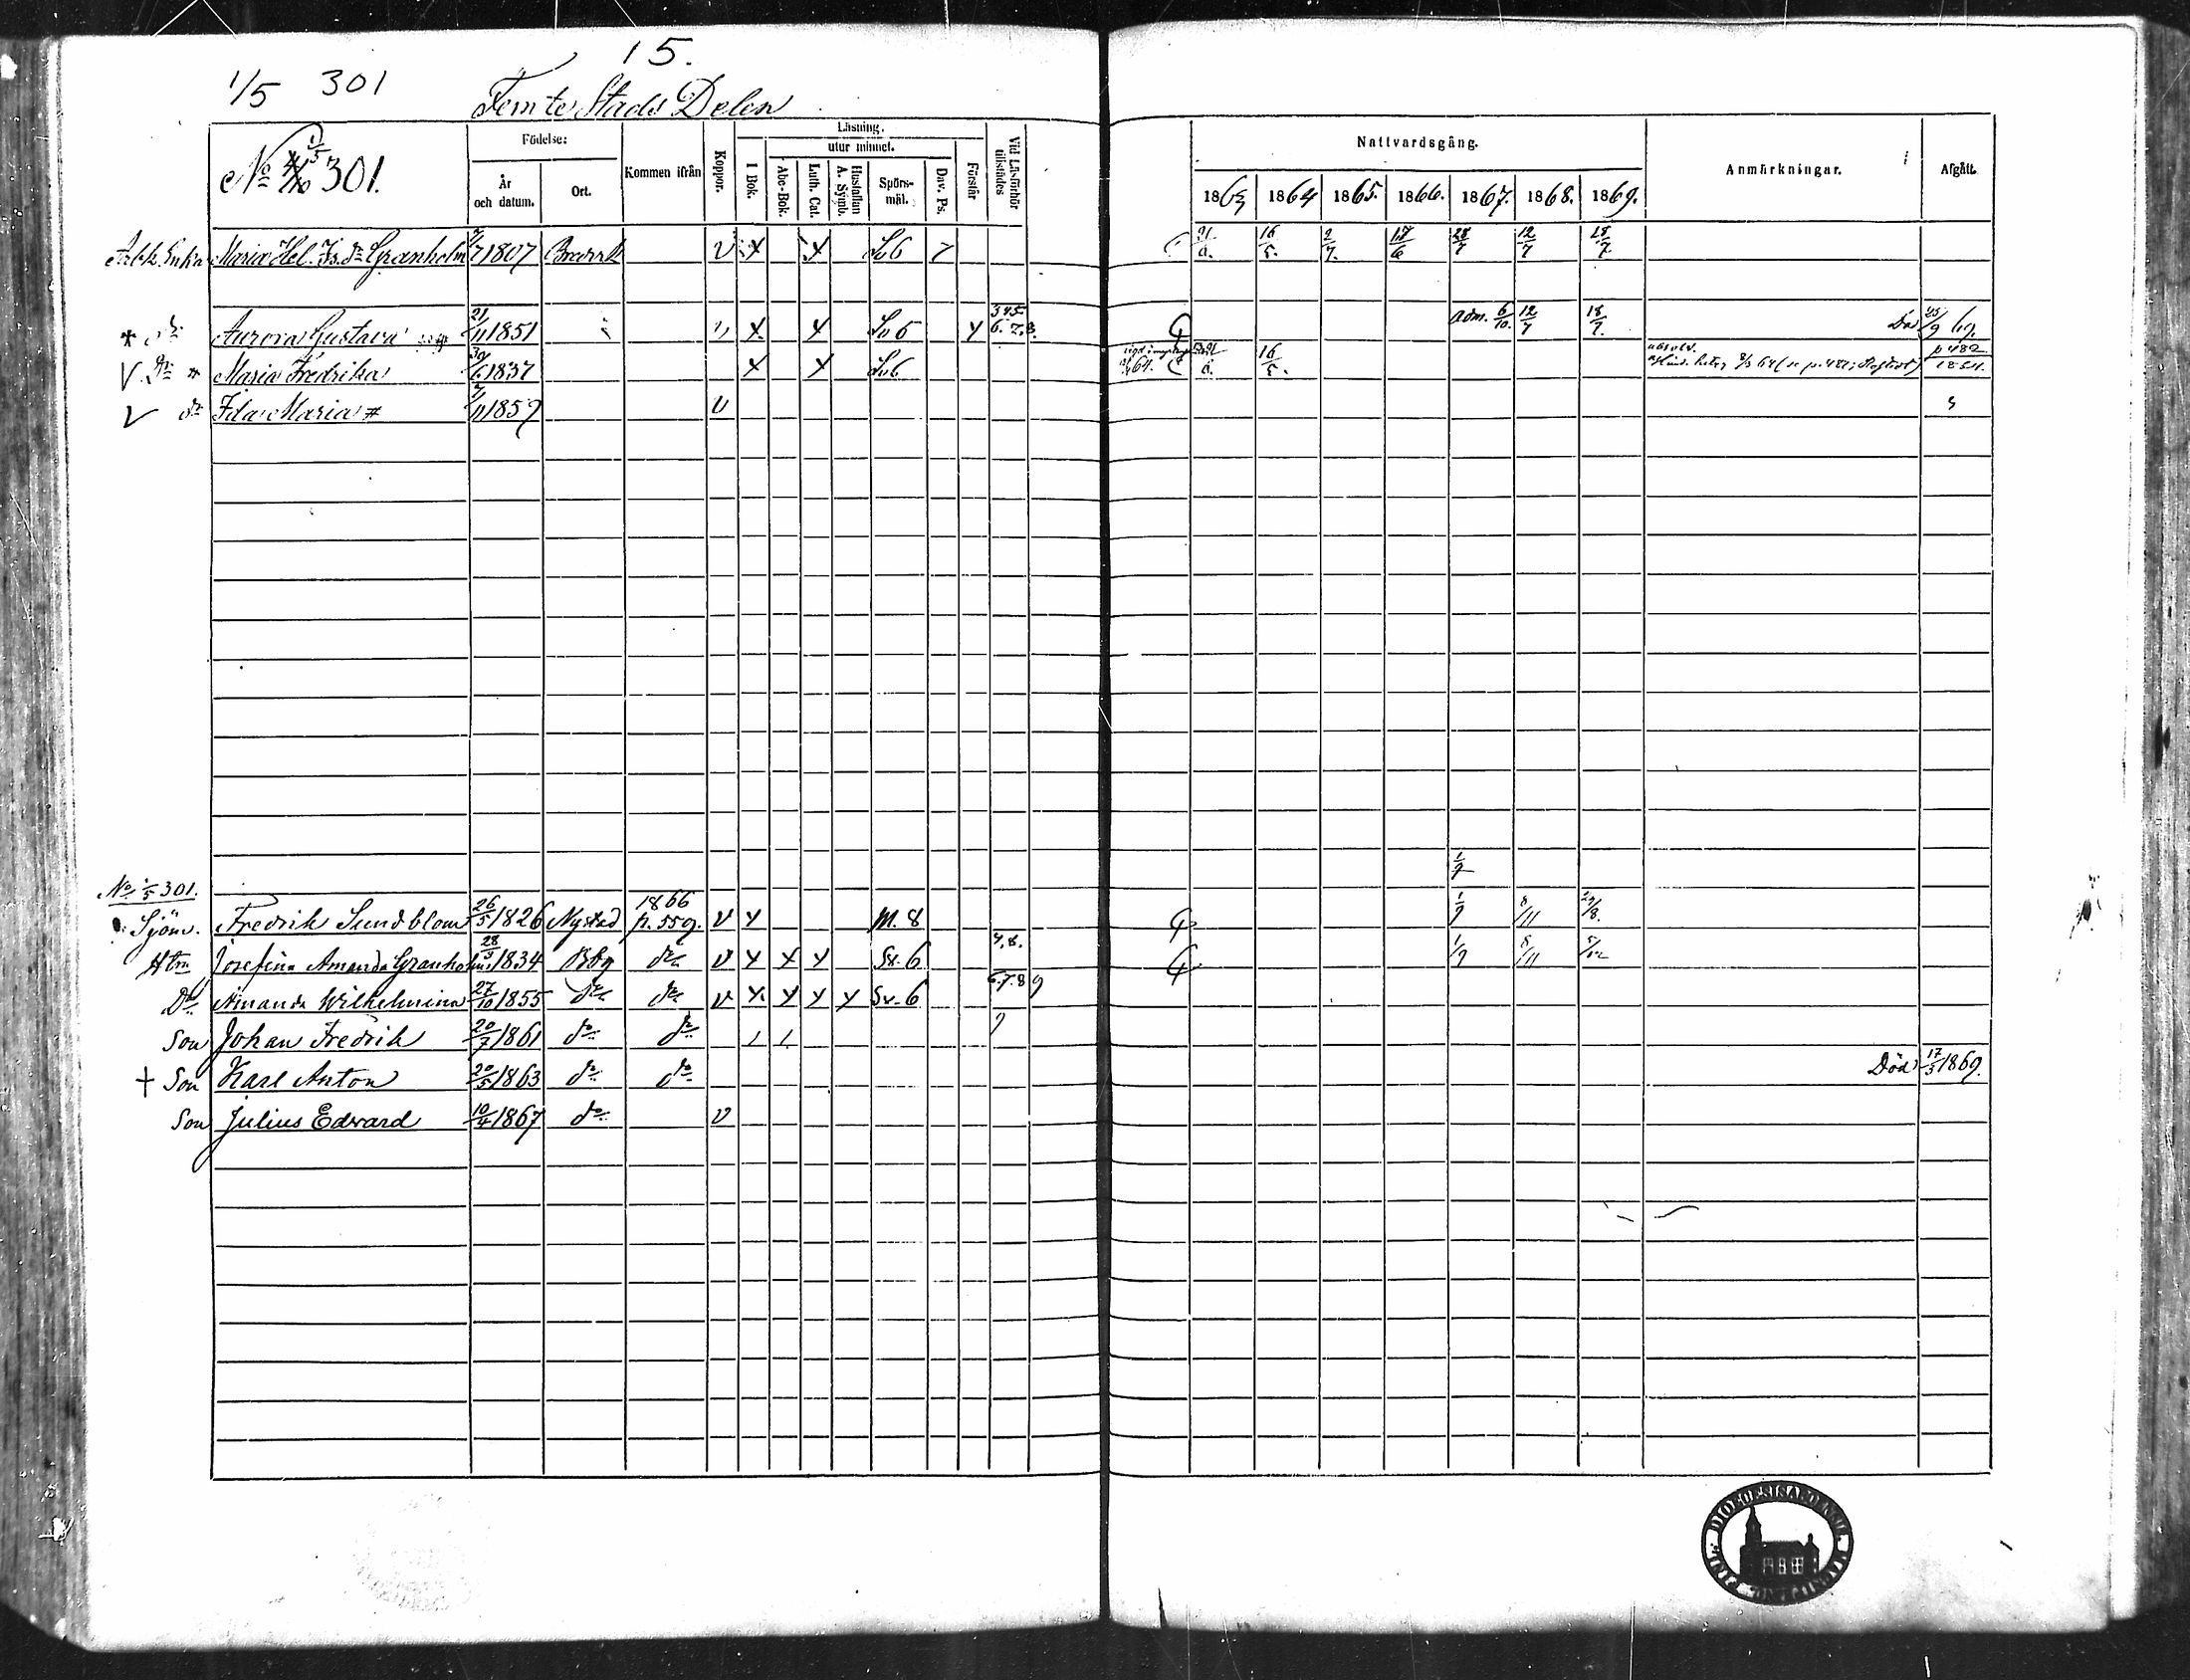 15.
1/5 301
Femte Stads Delen
No 1/5 301.
Födelse:
År och datum.
Ort.
Kommen ifrån
Koppor.
Läsning.
utur minnet.
I Bok.
Abc-Bok.
Luth. Cat.
Hustaflan A. Symb.
Spörs-mål.
Dav. Ps.
Förstår
Vid Läsförhör tillstädes
Nattvardsgång.
1863 1864 1865. 1866. 1867. 1868. 1869.
Anmärkningar.
Afgått.
Arbk. Enka Maria Hel. Granholm 1807 v x x 6 7 16/5. 2/7. 17/6 28/7 12/7 18/7
* dr Aurora Gustava 21/11 1851 v x x 6 x 345 6.7.8. adm. 6/10. 12/7 18/7. Död 25/9 69.
V dr * Maria Fredrika 30/6 1837 x x 6 16/5. p 482
V dr Ida Maria # 7/11 1859 v
1/9
No 1/5 301.
Sjöm. Fredrik Sundblom 26/5 1826 Nystad 1866 p. 559. v x M. 8 1/9 8/11 29/8.
Htru Josefina Amanda Granholm 28/3 1834 Bbg do v x x x Sv. 6 7.8. 1/9 8/11 5/12
Dr Amanda Wilhelmina 27/10 1855 do do v x x x x Sv. 6 6.7.8 9
Son Johan Fredrik 20/7 1861 do do 9
† Son Karl Anton 20/5 1863 do do Död 17/3 1869.
Son Julius Edvard 10/4 1867 do v